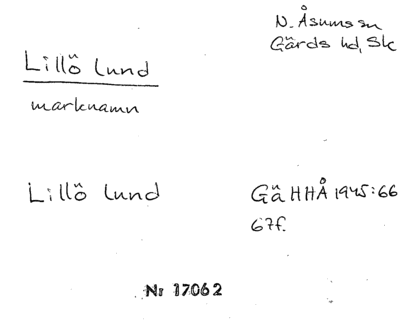 N. Åsums sn
Gärds hd, Sk
Lillö lund
marknamn
Lillö lund
Gä HHÅ 1945:66
67f.
Nr 17062